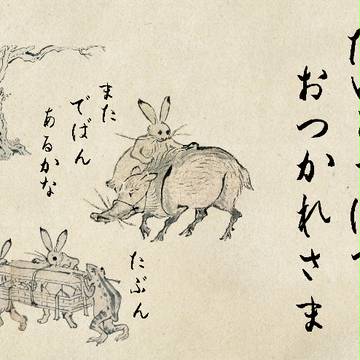 おつかれさま
また
でばん
あるかな
たぶん